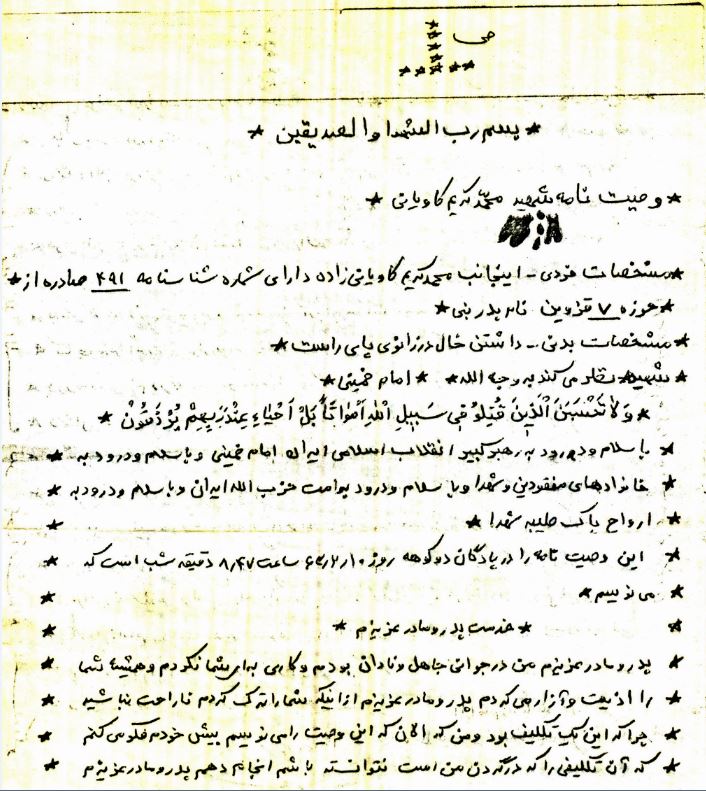 بسم رب الشهدا والصدیقین
وصیت نامه شهید محمد کریم کاویانی
مشخصات فردی - اینجانب محمد کریم کاویانی زاده دارای شماره شناسنامه ۴۹۱ صادره از
حوزه ۷ قزوین نام پدر
مشخصات بدنی - داشتن خال در زانوی پای راست
شهید نظر می کند به وجه الله امام خمینی
وَلاٰ تَحْسَبَنَ اَلَّذینَ قُتِلُو فی سَبیلِ اللهِ اَمْوٰاتاً بَلْ اَحْیٰاءِ عِنْدَ رَبِهِمْ یُرْزَقُونْ
با سلام و درود به رهبر کبیر انقلاب اسلامی ایران امام خمینی و با سلام و درود به
خانوادهای مفقودین و شهدا و با سلام و درود بر امت حزب الله ایران و با سلام و درود به
ارواح پاک طیبه شهدا
این وصیت نامه را در پادگان دوکوهه روز ساعت ۸٫۴۷ دقیقه شب است که
می نویسم
خدمت پدر و مادر عزیزم
پدر و مادر عزیزم من در جوانی جاهل و نادان بودم و کاری برای شما نکردم و همیشه شما
را اذیت و آزار می کردم پدر و مادر عزیزم از اینکه شما را ترک کردم ناراحت نباشید
چرا که این یک تکلیف بود و من که الان که این وصیت را می نویسم پیش خودم فکر می کنم
که آن تکلیفی را که در گردن من است نتوانسته باشم انجام دهم پدر و مادر عزیزم